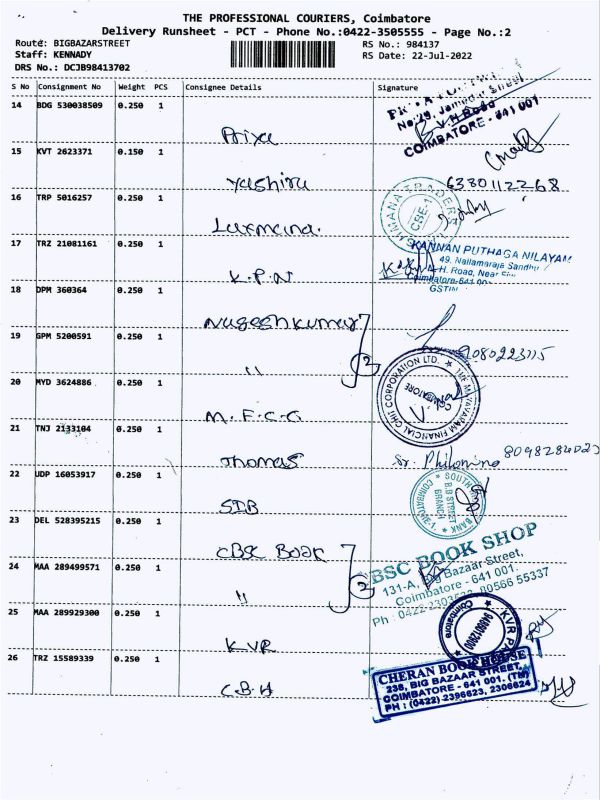 THE PROFESSIONAL COURIERS, Coimbatore
Delivery Runsheet - PCT - Phone No.:0422-3505555 - Page No.:2
Route: BIGBAZARSTREET RS No.: 984137
Staff: KENNADY RS Date: 22-Jul-2022
DRS No.: DCJB98413702
S No Consignment No Weight PCS Consignee Details Signature
14 BDG 530038509 0.250 1
Priya
No:29, Jamindar Street
COIMBATORE - 641 001
15 KVT 2623371 0.150 1
Yashiru
6380112268
16 TRP 5016257 0.250 1
Laxmana.
TRADERS
CBE-1
17 TRZ 21081161 0.250 1
K.P.N
KANNAN PUTHAGA NILAYAM
49, Nallamaraja Sandhu
H. Road, Near
Coimbatore-641 00
GSTIN
18 DPM 360364 0.250 1
Nageshkumar
19 GPM 5200591 0.250 1
"
2
9080223115
20 MYD 3624886 0.250 1
M.F.C.C
FINANCIAL CHIT CORPORATION LTD.
COIMBATORE
21 TNJ 2133104 0.250 1
Thomas
Sr. Philomina
22 UDP 16053917 0.250 1
SIB
SOUTH INDIAN BANK
B.B STREET
BRANCH
COIMBATORE-1
23 DEL 528395215 0.250 1
CBSC Book
24 MAA 289499571 0.250 1
"
2
BSC BOOK SHOP
131-A, Big Bazaar Street,
Coimbatore - 641 001.
Ph : 0422-2303522, 80566 55337
25 MAA 289929300 0.250 1
KVR
KVR
Coimbatore
26 TRZ 15589339 0.250 1
C.B.H
CHERAN BOOK HOUSE
238, BIG BAZAAR STREET,
COIMBATORE - 641 001. (TN)
PH : (0422) 2396623, 2306624